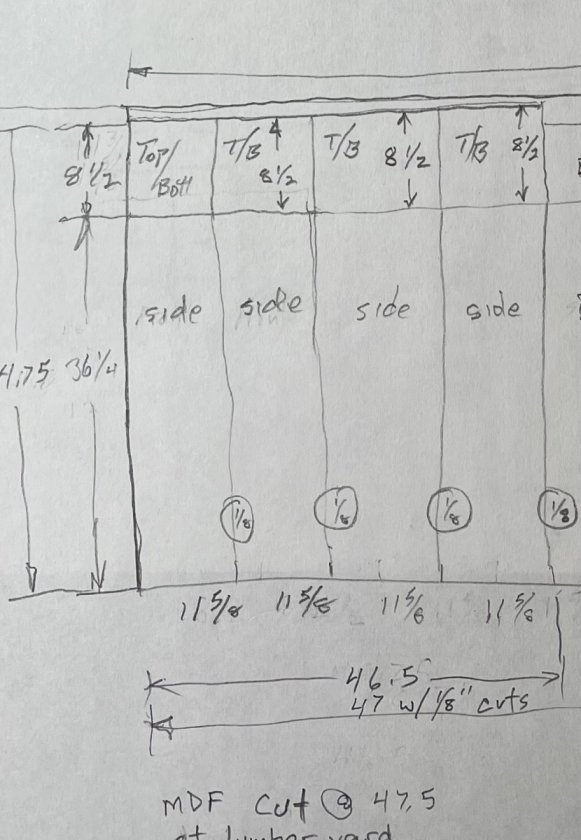 Top/ T/B T/B T/B
Bott
8 1/2 8 1/2 8 1/2 8 1/2
side side side side
4.75 36 1/4
1/8 1/8 1/8 1/8
11 5/8 11 5/8 11 5/8 11 5/8
46.5
47 w/ 1/8" cuts
MDF cut @ 47.5
at lumber yard